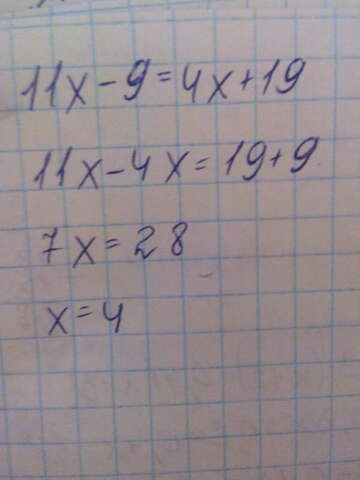 11x-9=4x+19
11x-4x=19+9
7x=28
x=4